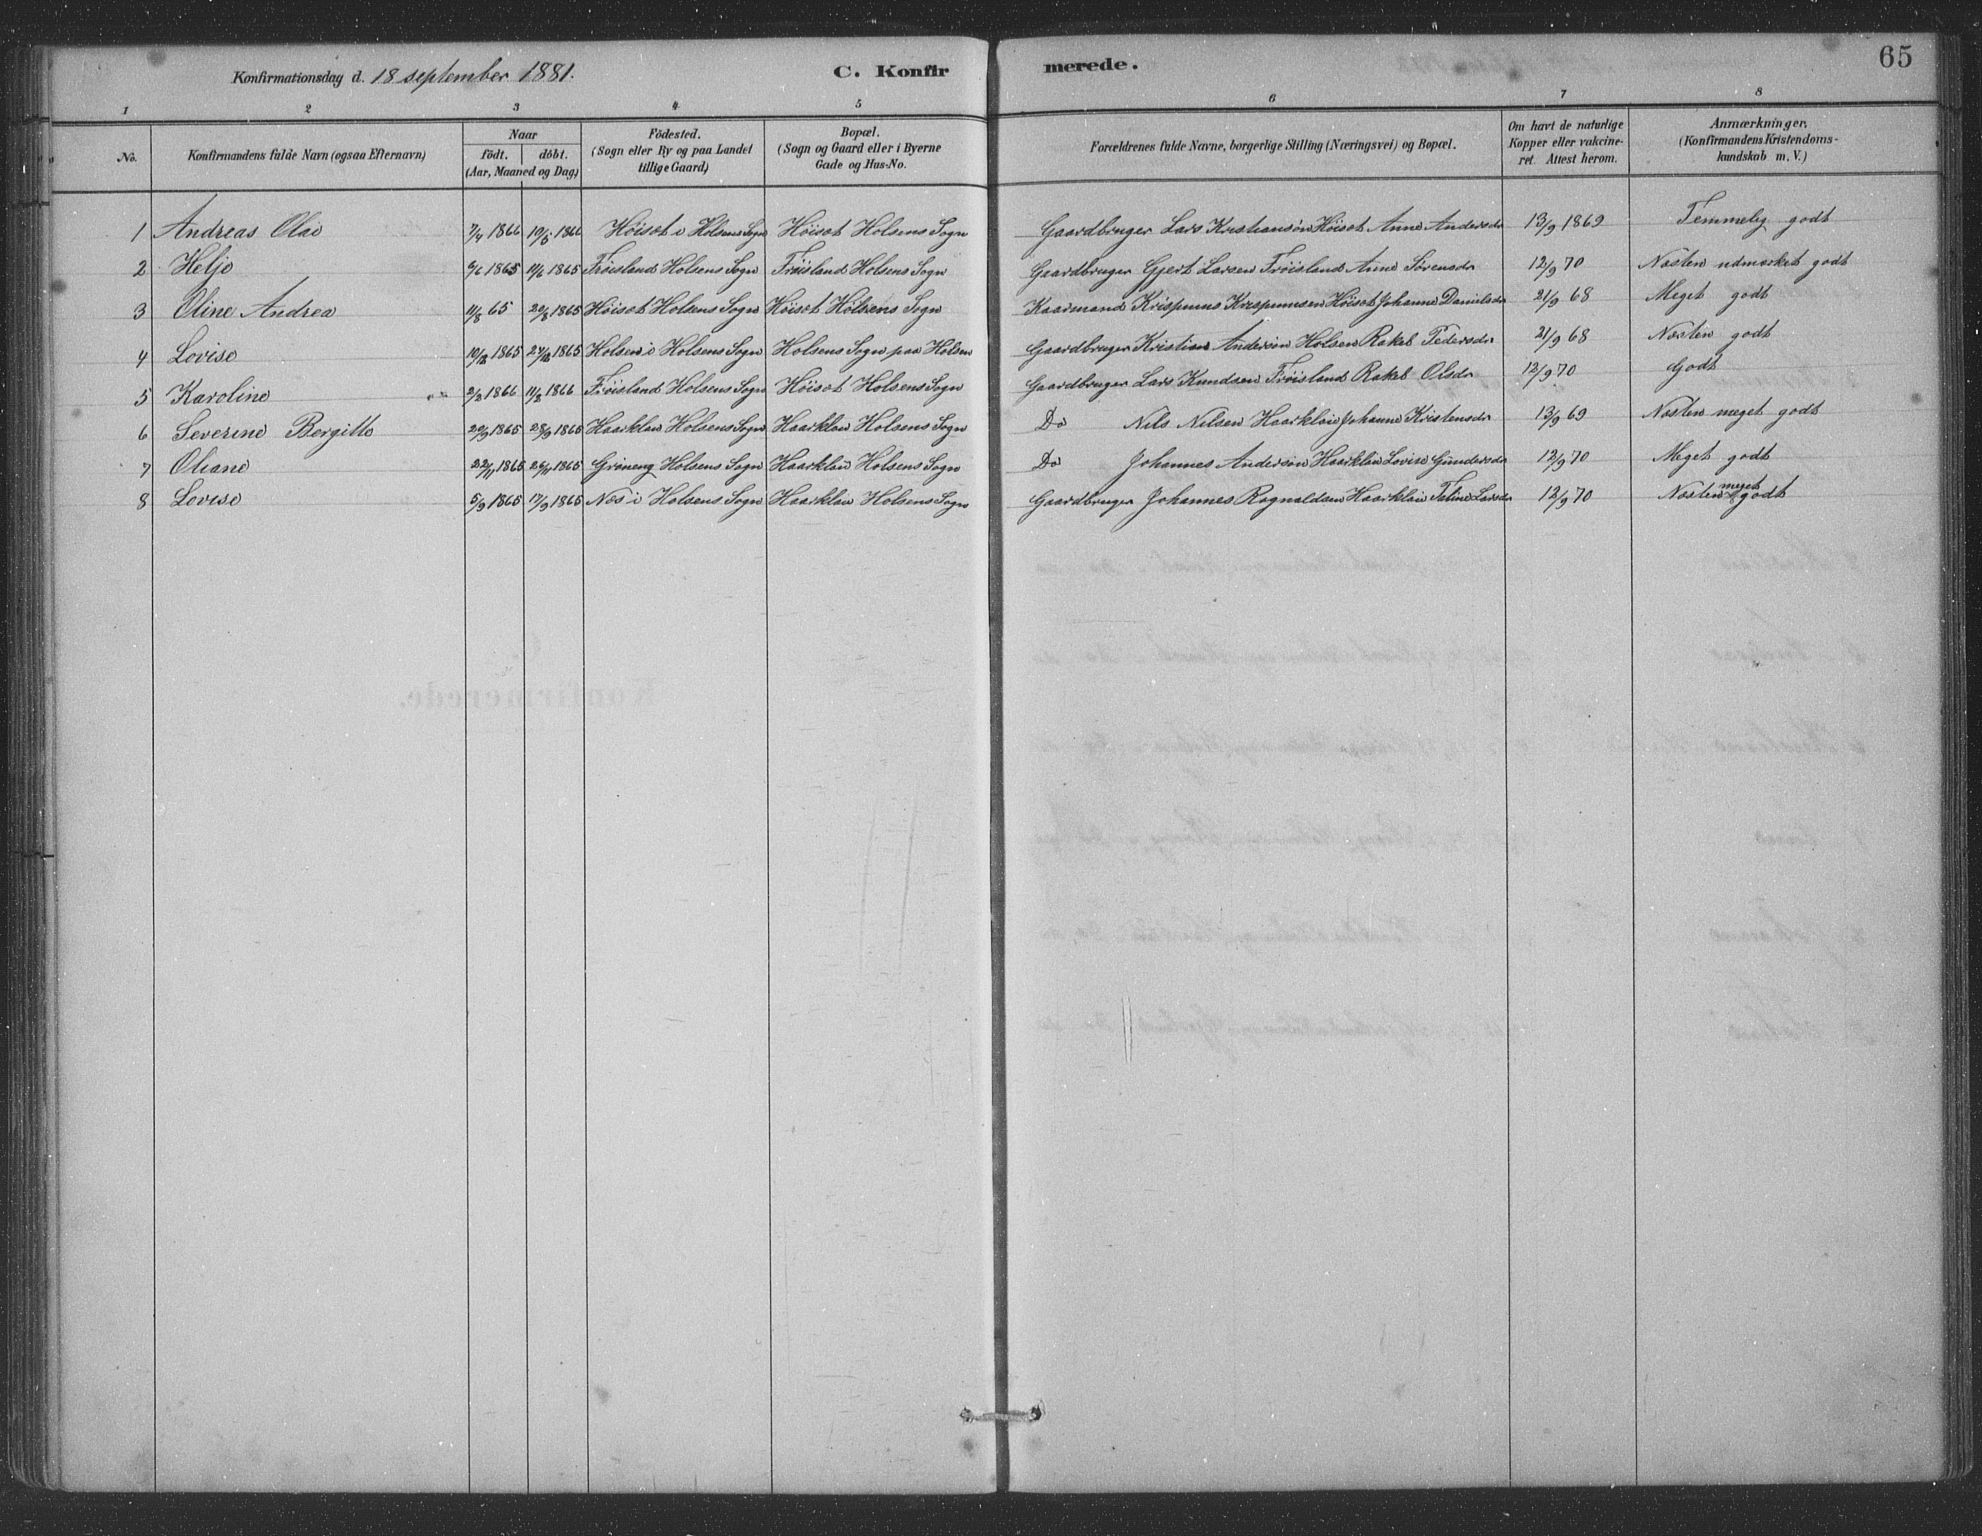 Konfirmationsdag d. 18 september 1881. C. Konfirmerede. 65
1 2 3 4 5 6 7 8
No. Konfirmandens fulde Navn (ogsaa Efternavn) Naar födt. döbt. (Aar, Maaned og Dag) Födested. (Sogn eller By og paa Landet tillige Gaard) Bopæl. (Sogn og Gaard eller i Byerne Gade og Hus-No. Forældrenes fulde Navne, borgerlige Stilling (Næringsvei) og Bopæl. Om havt de naturlige Kopper eller vakcineret. Attest herom. Anmærkninger. (Konfirmandens Kristendomskundskab m. V.)
1 Andreas Olai 7/4 1866 10/5 1866 Höiset i Holsens Sogn Höiset Holsens Sogn Gaardbruger Lars Kristiansön Höiset Anne Andersdr 13/9 1869 Temmelig godt
2 Helje 1865 11/6 1865 Fröisland Holsens Sogn Fröisland Holsens Sogn Gaardbruger Gjert Larsen Fröisland Anne Sörensdr 12/9 70 Næsten udmærket godt
3 Oline Andrea 11/8 65 20/8 1865 Höiset Holsens Sogn Höiset Holsens Sogn Kaarmand Krispinus Krispinusen Höiset Johanne Danielsdr 21/9 68 Meget godt
4 Lovise 10/12 1865 27/12 1865 Holsen i Holsens Sogn Holsens Sogn paa Holsen Gaardbruger Kristian Anderson Holsen Rakel Pedersdr 21/9 68 Næsten godt
5 Karoline 2/2 1866 11/2 1866 Fröisland Holsens Sogn Höiset Holsens Sogn Gaardbruger Lars Knudsen Fröisland Rakel Olsdr 12/9 70 Godt
6 Severine Bergitte 20/9 1865 28/9 1865 Haarklau Holsens Sogn Haarklau Holsens Sogn Do Nils Nilsen Haarklau Johanne Kristensdr 13/9 69 Næsten meget godt
7 Oliane 22/11 1865 26/11 1865 Grimeng Holsens Sogn Haarklau Holsens Sogn Do Johannes Anderson Haarklau Lovise Gundersdr 12/9 70 Meget godt
8 Lovise 5/9 1865 17/9 1865 Nes i Holsens Sogn Haarklau Holsens Sogn Gaardbruger Johannes Ragnaldsen Haarklau Larsdr 12/9 70 Næsten meget godt